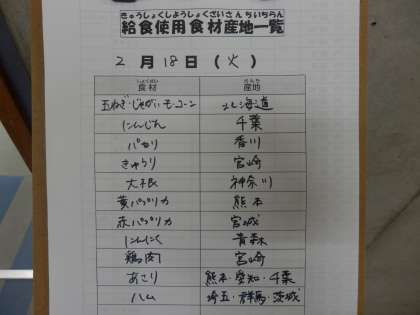 きゅうしょくしようしょくざいさんちいちらん
給食使用食材産地一覧
2月18日(火)
しょくざい さんち
食材 産地
玉ねぎ・じゃがいも・コーン 北海道
にんじん 千葉
パセリ 香川
きゅうり 宮崎
大根 神奈川
黄パプリカ 熊本
赤パプリカ 宮城
にんにく 青森
鶏肉 宮崎
あさり 熊本・愛知・千葉
ハム 埼玉・群馬・茨城